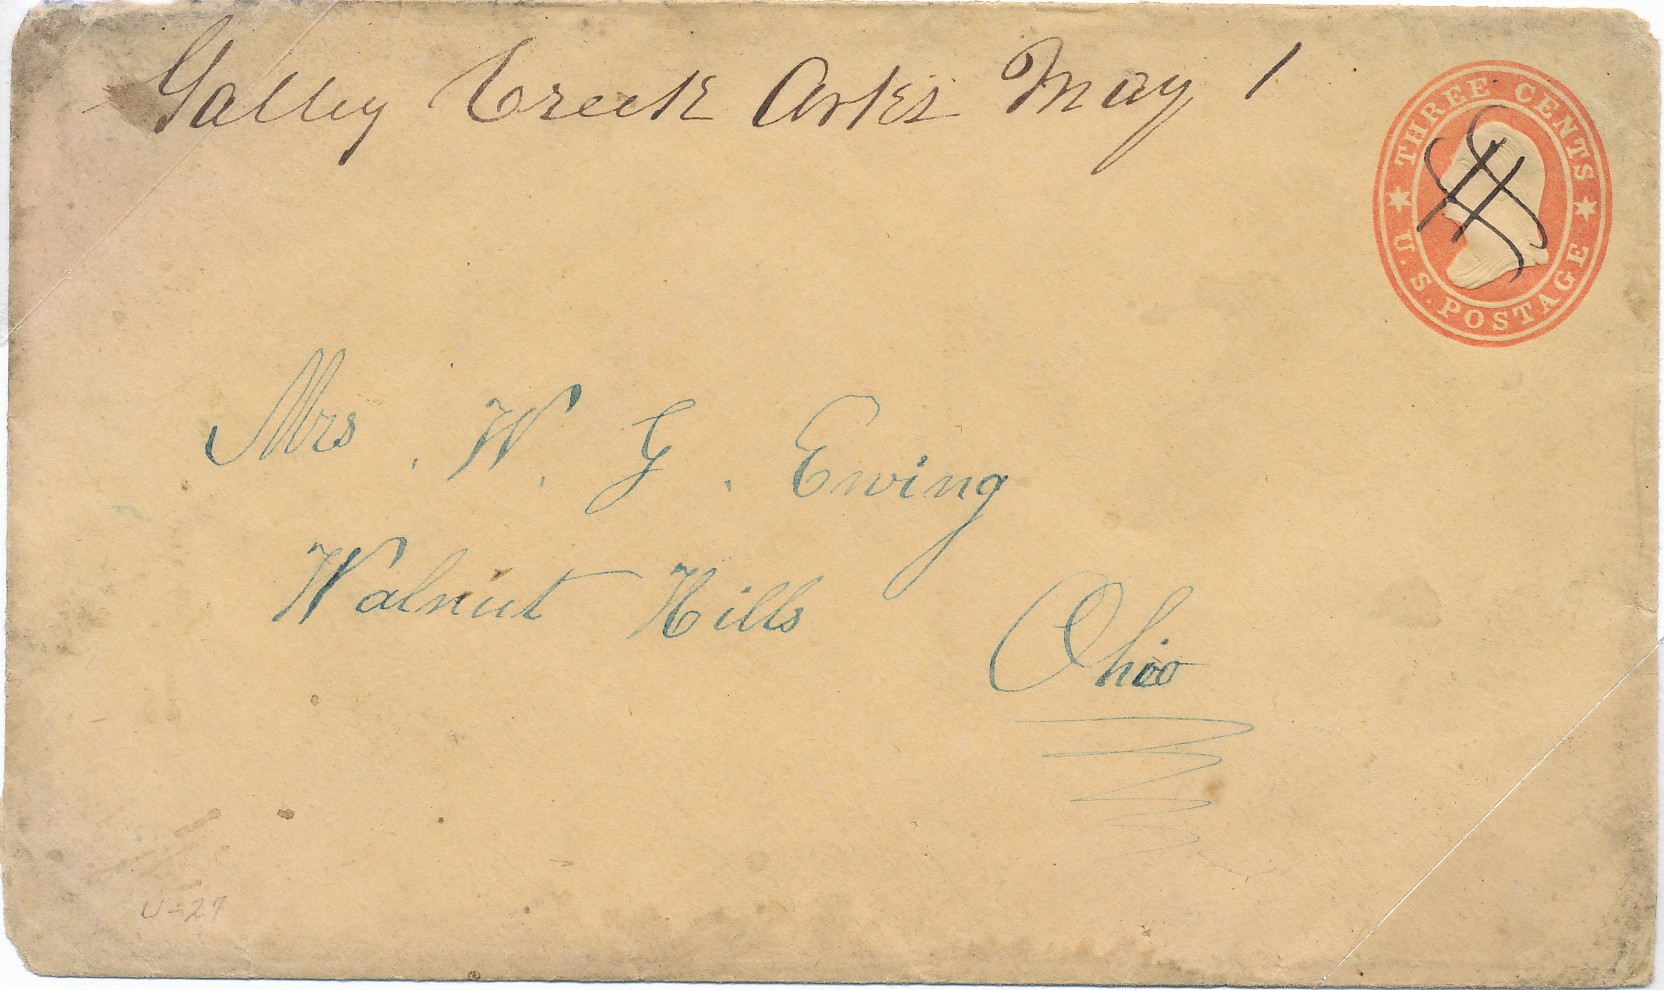 Galley Creek Arks May 1
THREE CENTS
U.S. POSTAGE
Mrs. W. G. Ewing
Walnut Hills Ohio
U-27